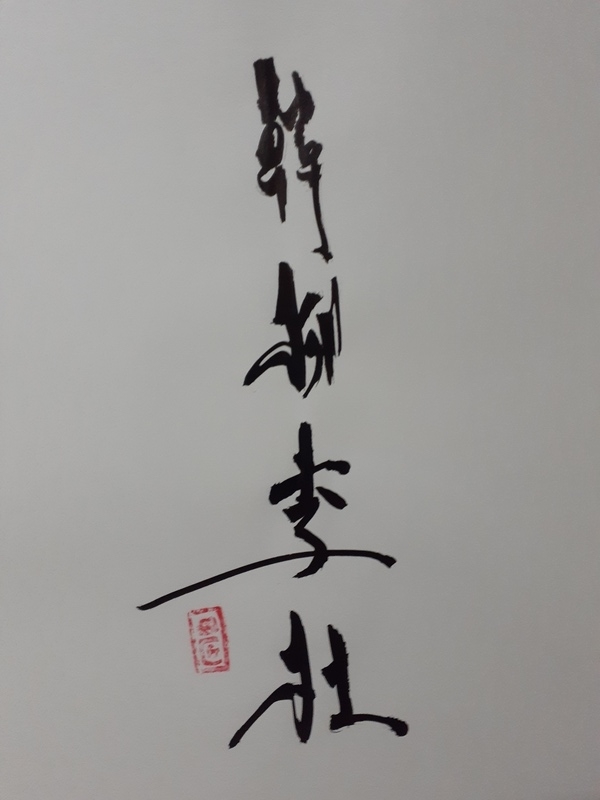 韓柳李杜